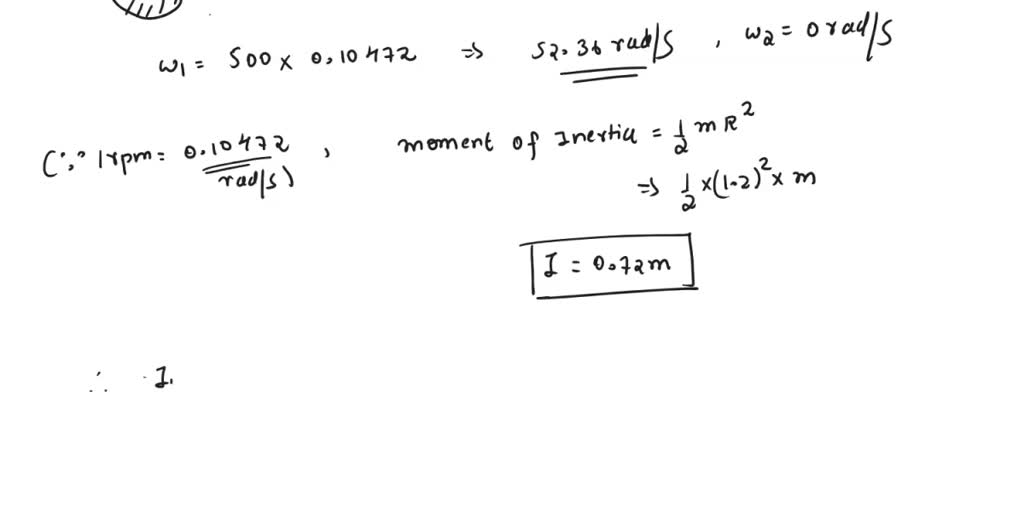 ω1 = 500 x 0.10472 ⇒ 52.36 rad/s , ω2 = 0 rad/s
(∵ 1rpm = 0.10472 rad/s) , moment of Inertia = 1/2 m R²
⇒ 1/2 x (1.2)² x m
I = 0.72m
∴ I.